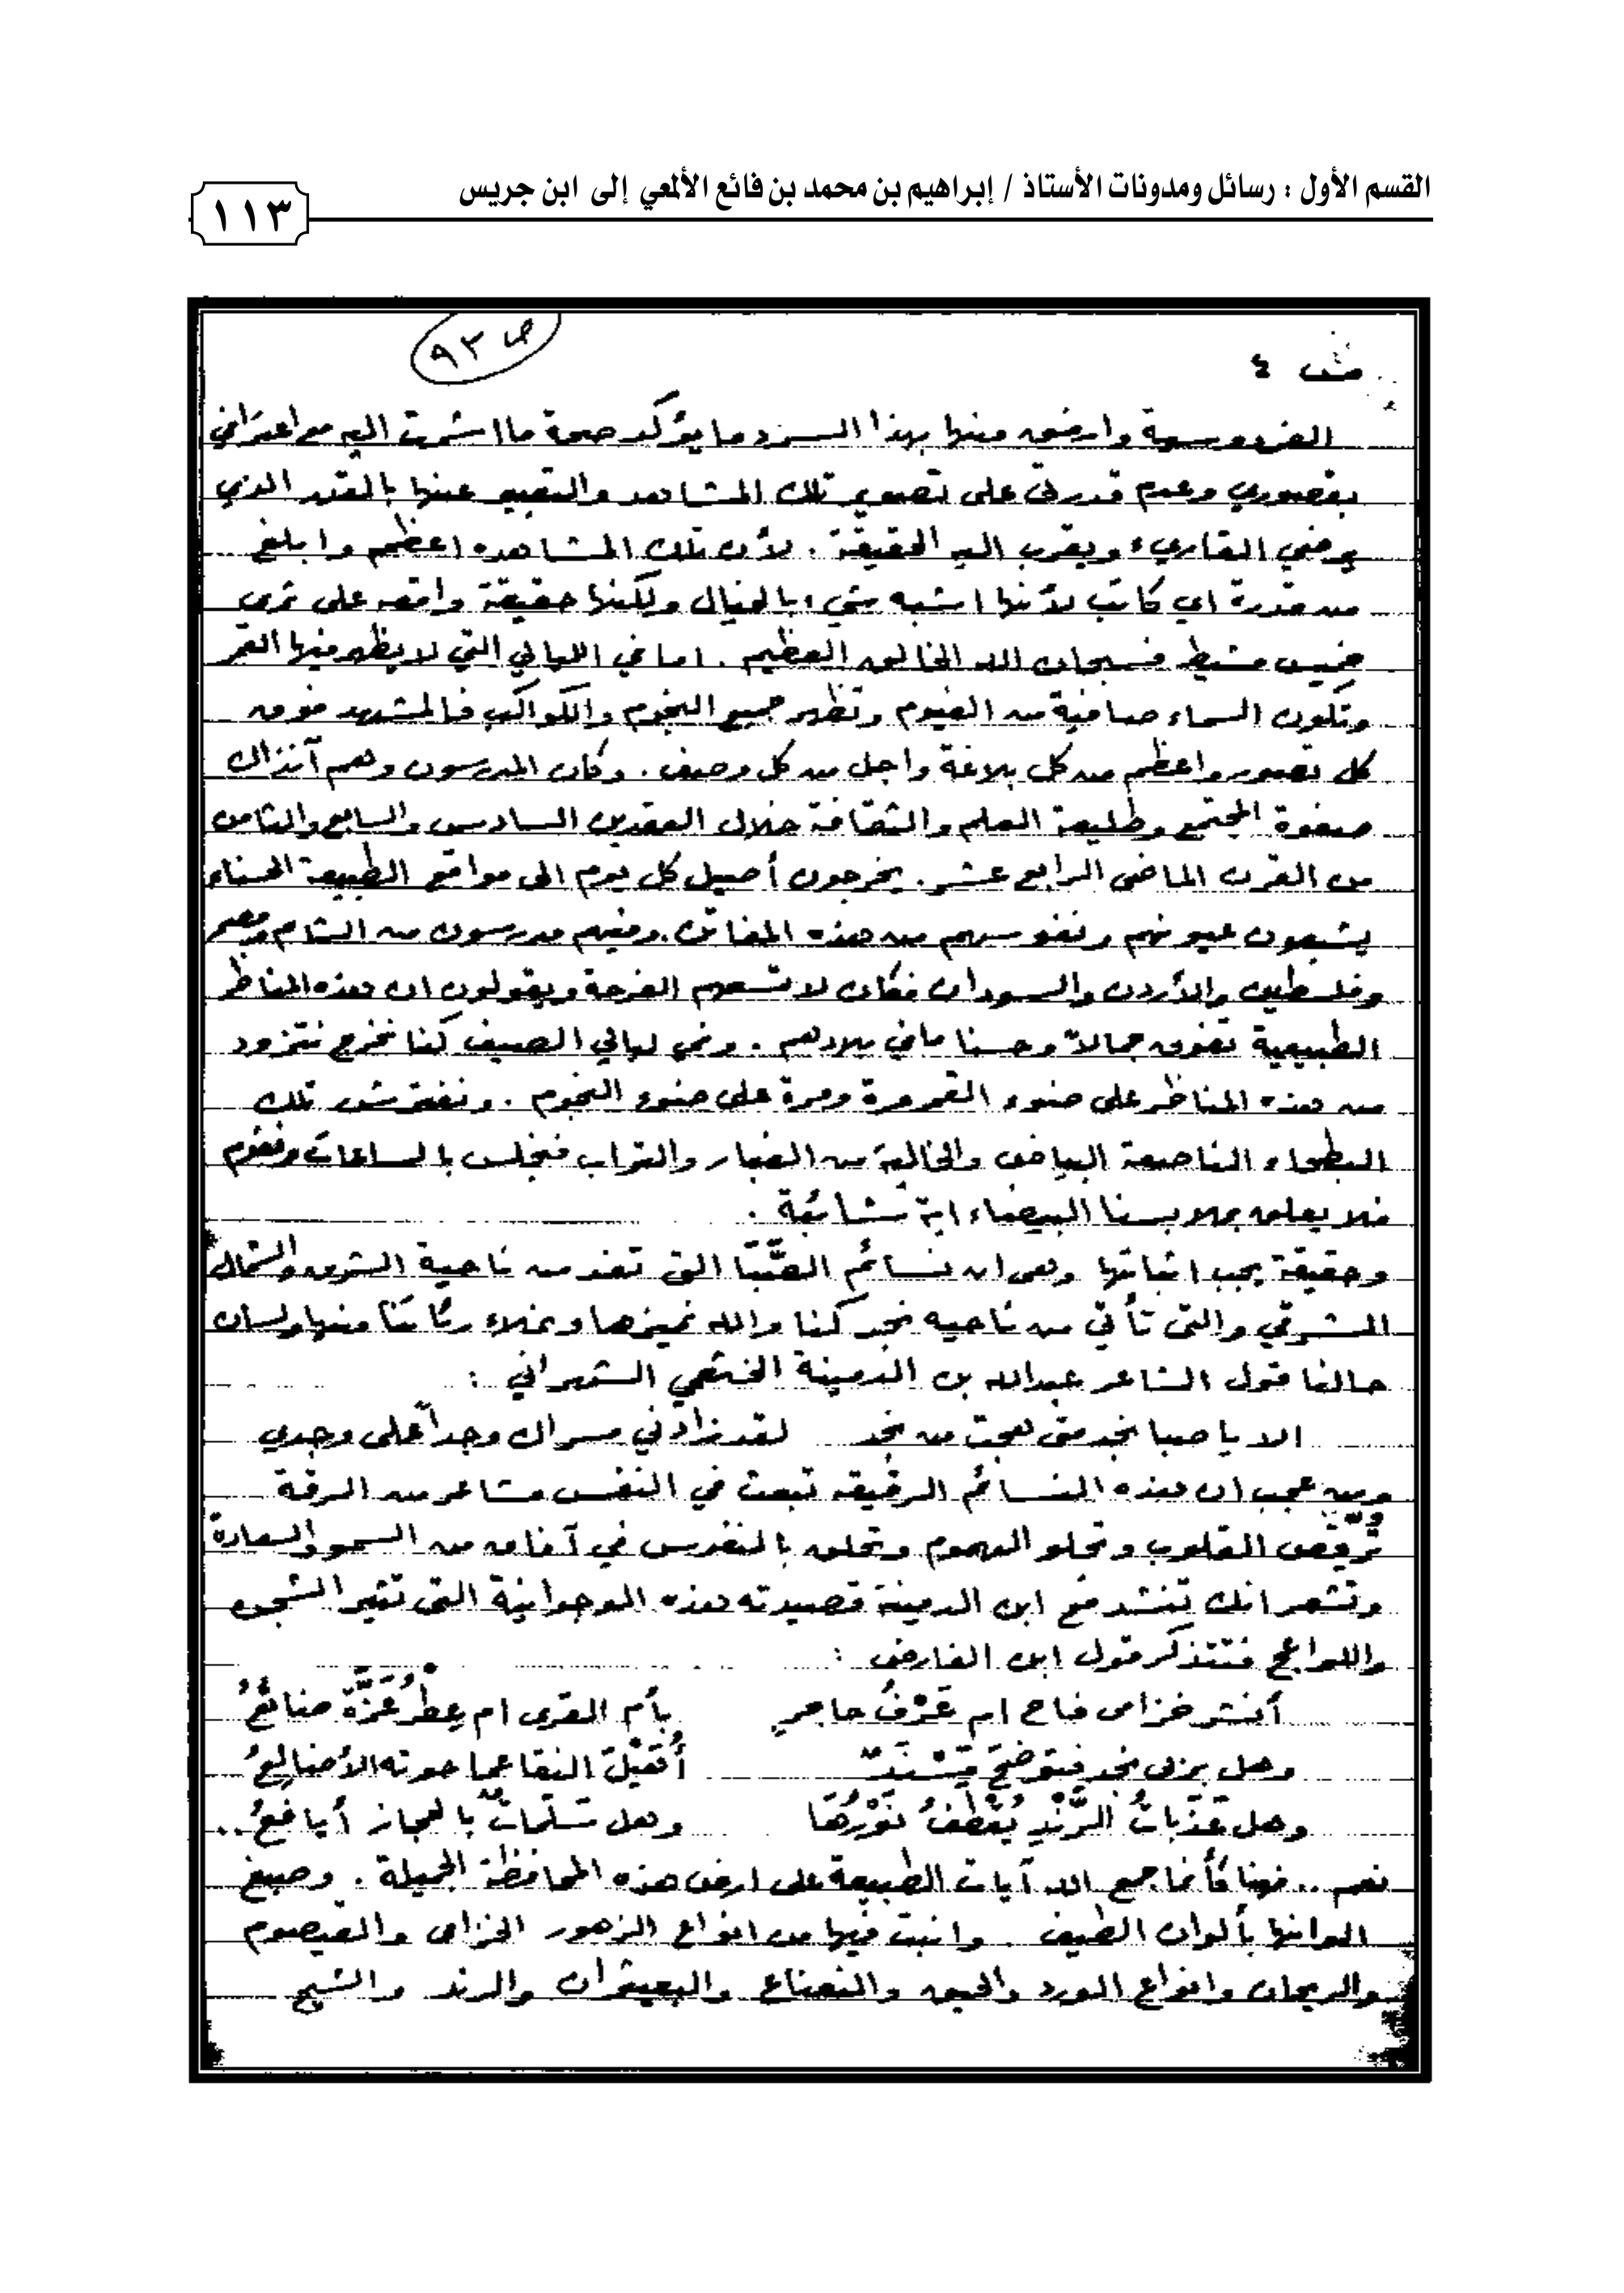 القسم الأول : رسائل ومدونات الأستاذ / إبراهيم بن محمد بن فائع الألمعي إلى ابن جريس
١١٣
ص ٩٣
٤
الفردوسية وارضى منها بهذا السرد ما يؤكد صحة ما اشرت اليه مع اعترافي
بقصوري وعدم قدرتي على تصوير تلك المشاهد والتعبير عنها بالقدر الذي
يرضي القاريء ويقرب اليه الحقيقة . لأن تلك المشاهده اعظم وابلغ
من قدرة اي كاتب لأنها اشبه شيء بالخيال ولكنها حقيقة واقعه على ثرى
خميس مشيط فسبحان الله الخالق العظيم . اما في الليالي التي لا يظهر فيها القمر
وتكون السماء صافية من الغيوم وتظهر جميع النجوم والكواكب فالمشهد فوق
كل تصور واعظم من كل بلاغة واجل من كل وصف . وكان المدرسون وهم آنذاك
صفوة المجتمع وطليعة العلم والثقافة خلال العقدين السادس والسابع والثامن
من القرن الماضي الرابع عشر . يخرجون أصيل كل يوم الى مواقع الطبيعة الحسناء
يشبعون عيونهم ونفوسهم من هذه المفاتن . وفيهم مدرسون من الشام ومصر
وفلسطين والأردن والسودان فكان لا تسعهم الفرحة ويقولون ان هذه المناظر
الطبيعية تفوق جمالاً وحسنا ما في بلادهم . وفي ليالي الصيف كنا نخرج نتزود
من هذه المناظر على ضوء القمر مرة ومرة على ضوء النجوم . ونفترش تلك
البطحاء الناصعة البياض والخالية من الغبار والتراب فنجلس بالساعات ونقوم
فلا يعلق بملابسنا البيضاء اية شائبة .
وحقيقة يجب اثباتها وهي ان نسائم الصَّبَا التي تفد من ناحية الشرق والشمال
المشرقي والتي تأتي من ناحيه نجد كنا والله نميزها ونملاء رئاتنا منها ولسان
حالنا قول الشاعر عبدالله بن الدمينة الخثعمي الشهراني :
الا يا صبا نجد متى هجت من نجد لقد زادني مسراك وجداً على وجدي
ومن عجب ان هذه النسائم الرقيقه تبعث في النفس مشاعر من الرقة
تُرقِّص القلوب وتجلو الهموم وتحلق بالنفس في آفاق من السمو والسعادة
وتشعر انك تنشد مع ابن الدمينة قصيدته هذه الوجدانية التي تثير الشجون
واللواعج فتتذكر قول ابن الفارض :
أنشر خزامى فاح ام عَرْفُ حاجرٍ بأم القرى ام عِطْرُ عَزَّةَ ضائعُ
وهل بربى نجد فتوضِحَ مَسْنَدٌ أُهَيْلَ النقا عما حوته الأضالعُ
وهل عَذَباتُ الرَّندِ يُقْطَفُ نَوْرُهَا وهل سَلَماتٌ بالحجاز أيافعُ ..
نعم .. فهنا كأنما جمع الله آيات الطبيعة على ارض هذه المحافظة الجميلة . وصبغ
الوانها بألوان الطيف . وانبت فيها من انواع الزهور الخزامى والقيصوم
والريحان وانواع الورد والحبق والنعناع والبعيثران والرند والشيح